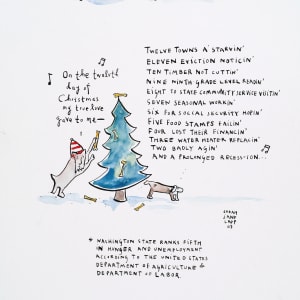 On the twelvth
day of
Christmas
my true love
gave to me—
TWELVE TOWNS A' STARVIN'
ELEVEN EVICTION NOTICIN'
TEN TIMBER NOT CUTTIN'
NINE NINTH-GRADE LEVEL READIN'
EIGHT TO STATE COMMUNITY SERVICE VISITIN'
SEVEN SEASONAL WORKIN'
SIX FOR SOCIAL SECURITY HOPIN'
FIVE FOOD STAMPS FAILIN'
FOUR LOST THEIR FINANCIN'
THREE WATER HEATER REPLACIN'
TWO BADLY AGIN'
AND A PROLONGED RECESS-ION...
SARAH
JANE
LAPP
03
* WASHINGTON STATE RANKS FIFTH
IN HUNGER AND UNEMPLOYMENT
ACCORDING TO THE UNITED STATES
DEPARTMENT OF AGRICULTURE &
DEPARTMENT OF LABOR.